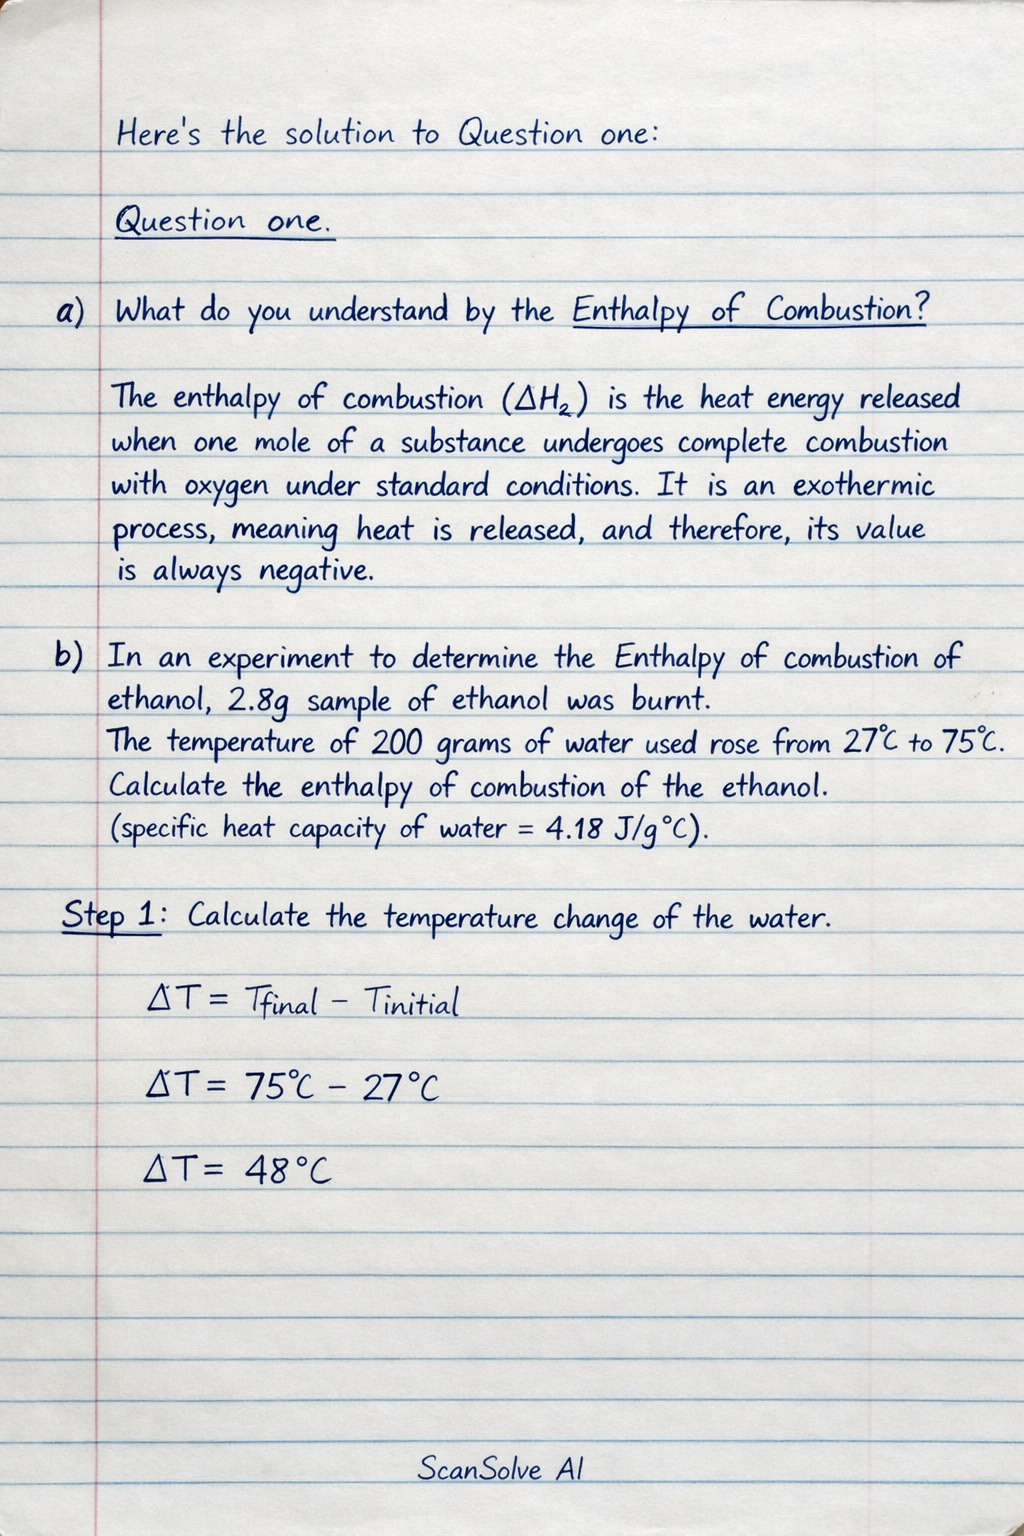 Here's the solution to Question one:
Question one.
a) What do you understand by the Enthalpy of Combustion?
The enthalpy of combustion (ΔH₂) is the heat energy released
when one mole of a substance undergoes complete combustion
with oxygen under standard conditions. It is an exothermic
process, meaning heat is released, and therefore, its value
is always negative.
b) In an experiment to determine the Enthalpy of combustion of
ethanol, 2.8g sample of ethanol was burnt.
The temperature of 200 grams of water used rose from 27°C to 75°C.
Calculate the enthalpy of combustion of the ethanol.
(specific heat capacity of water = 4.18 J/g°C).
Step 1: Calculate the temperature change of the water.
ΔT = Tfinal - Tinitial
ΔT = 75°C - 27°C
ΔT = 48°C
ScanSolve AI